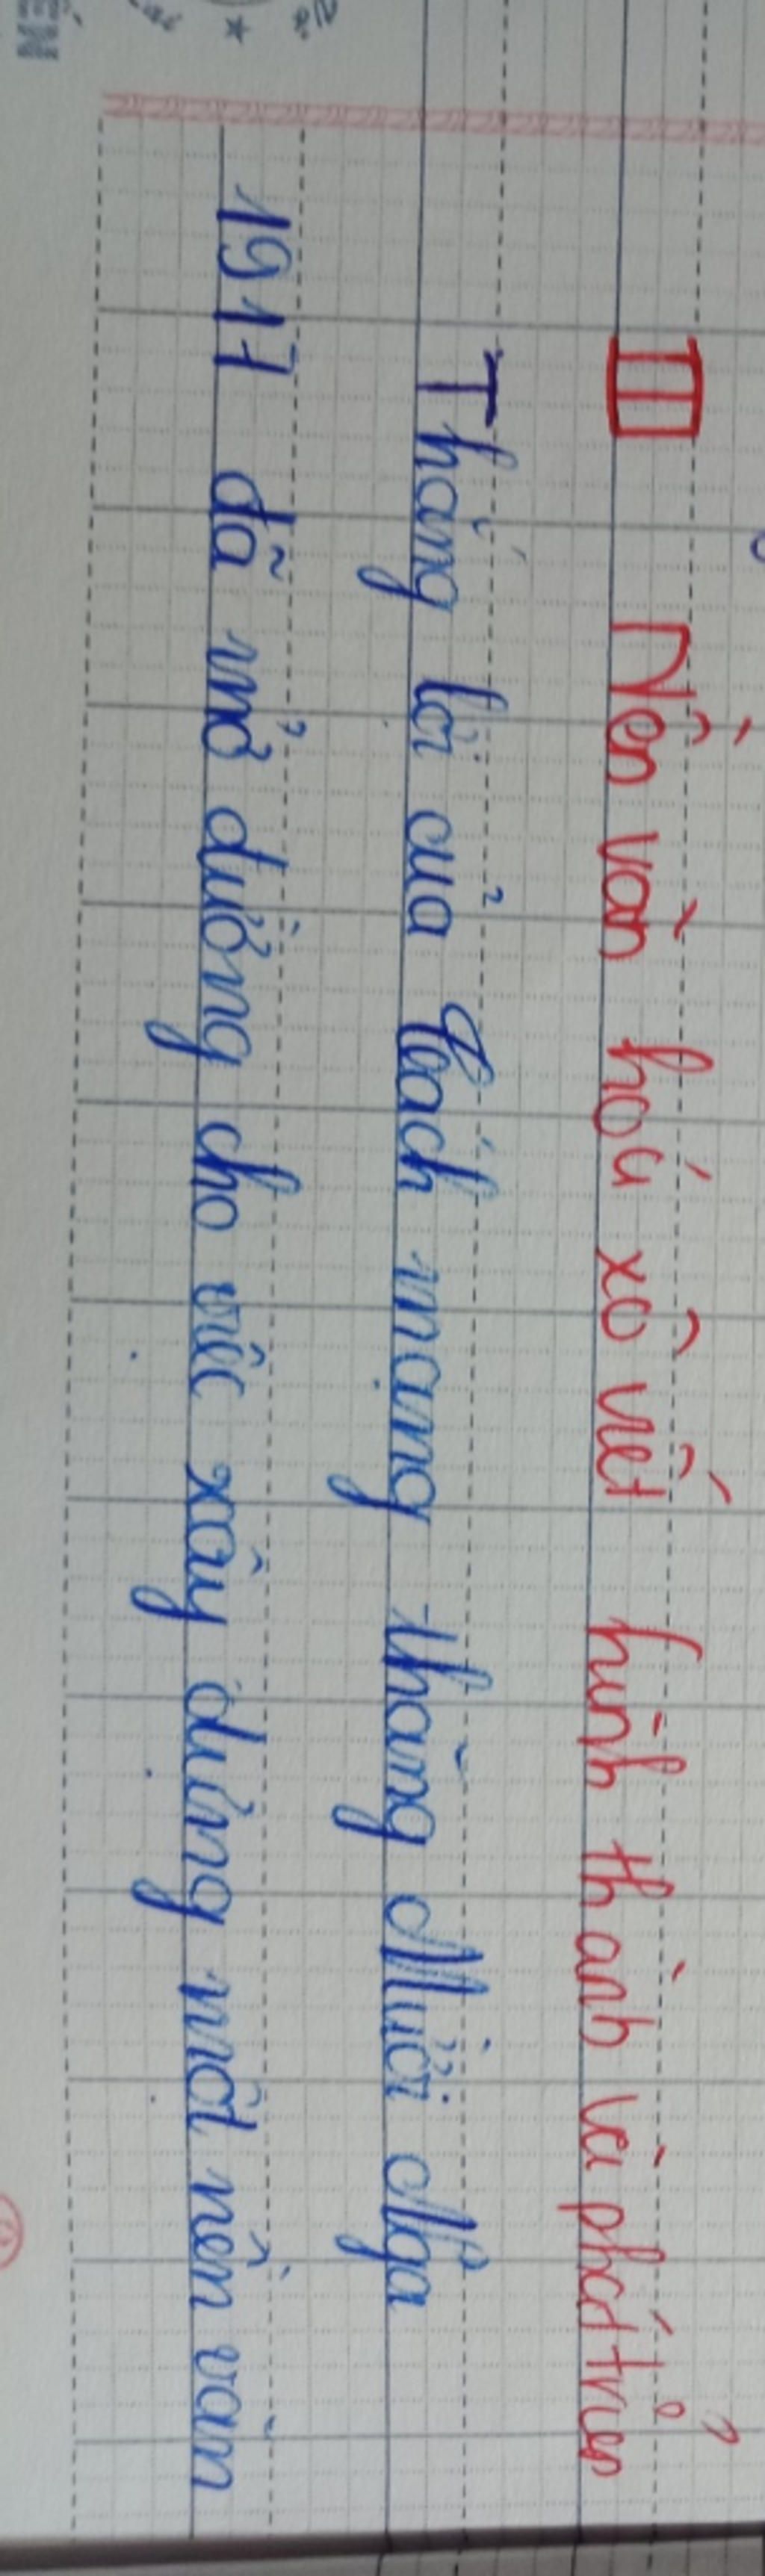 III Nền văn hoá xô viết hình thành và phát triển
Thắng lợi của Cách mạng tháng Mười Nga
1917 đã mở đường cho việc xây dựng một nền văn